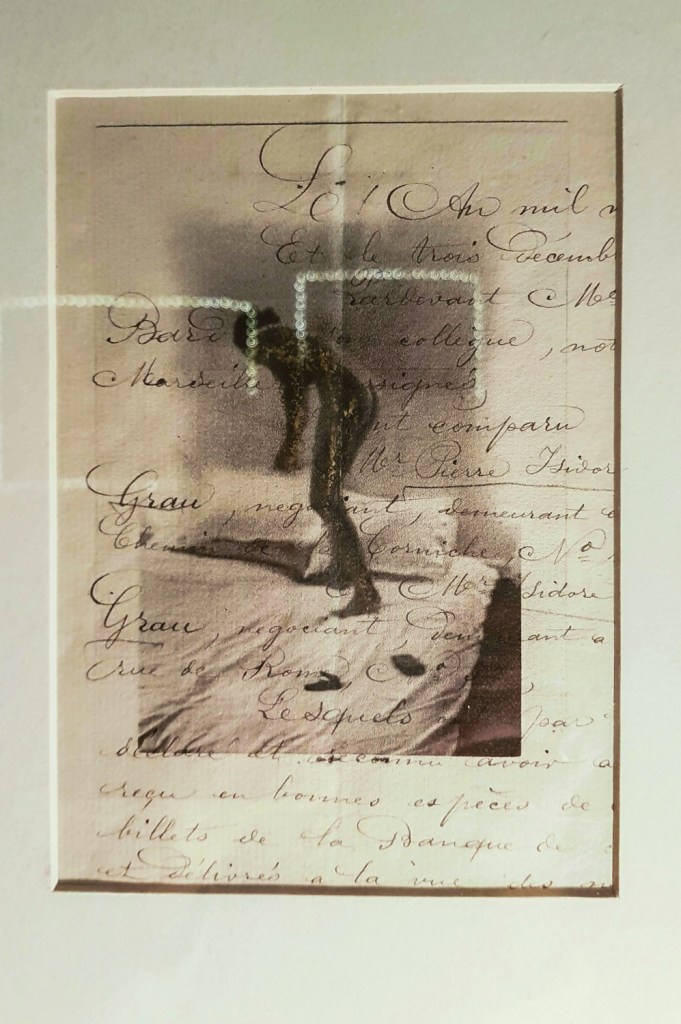 Lo! An mil
Et le trois Décemb
Pardevant Me
Bard son collègue, not
Marseille signés
ont comparu
Mr Pierre Isidor
Grau, négociant, demeurant
Chemin de la Corniche, No
Mr Isidore
Grau, négociant, demeurant a
rue de Rome, No
Lesquels par
déclaré et reconnu avoir
reçu en bonnes espèces de
billets de la Banque de
et délivrés a la vue des